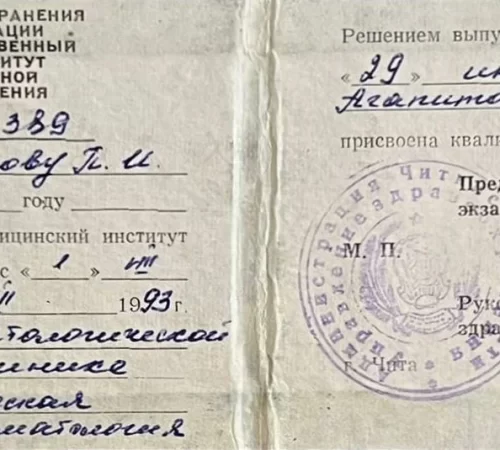 РАНЕНИЯ
АЦИИ
ТВЕННЫЙ
ТИТУТ
НОЙ
ЕНИЯ
389
ову П. И.
году
дицинский институт
с « 1 » VIII
1993 г.
тологической
линика
ская
матология
Решением выпу
« 29 » ин
Агапито
присвоена квали
Пред
экза
М. П.
Рук
здра
г. Чита
Администрация Чит
управление здра